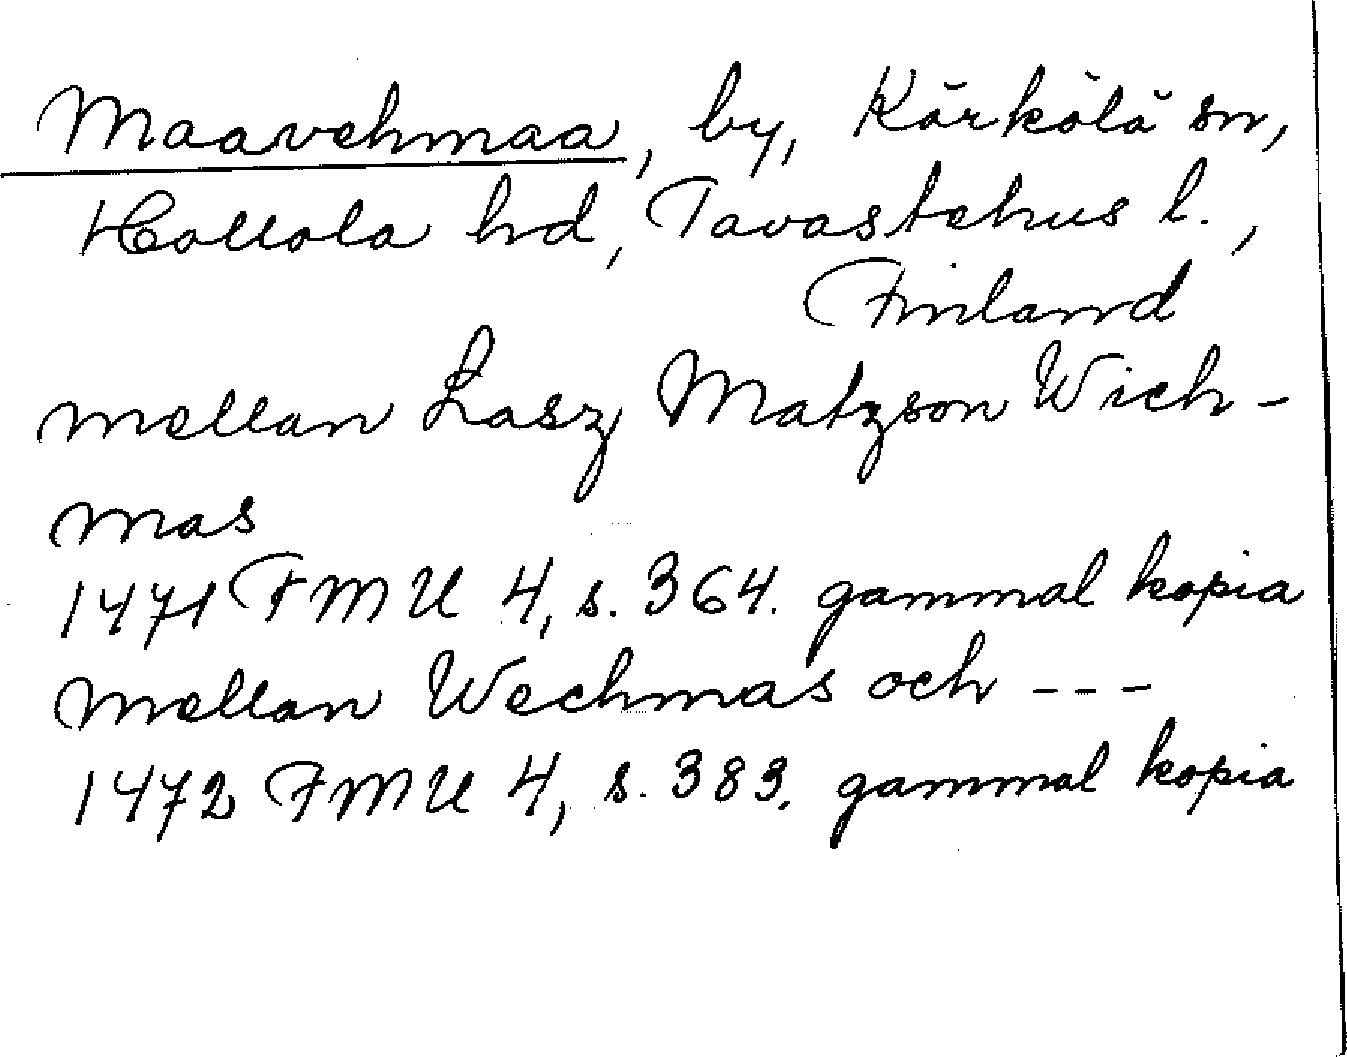 Maavehmaa, by, Kärkölä sn,
Hollola hd, Tavastehus l.,
Finland
mellan Lasz Matzson Wich-
mas
1471 FMU 4, s. 364. gammal kopia
mellan Wechmas och ---
1472 FMU 4, s. 383. gammal kopia